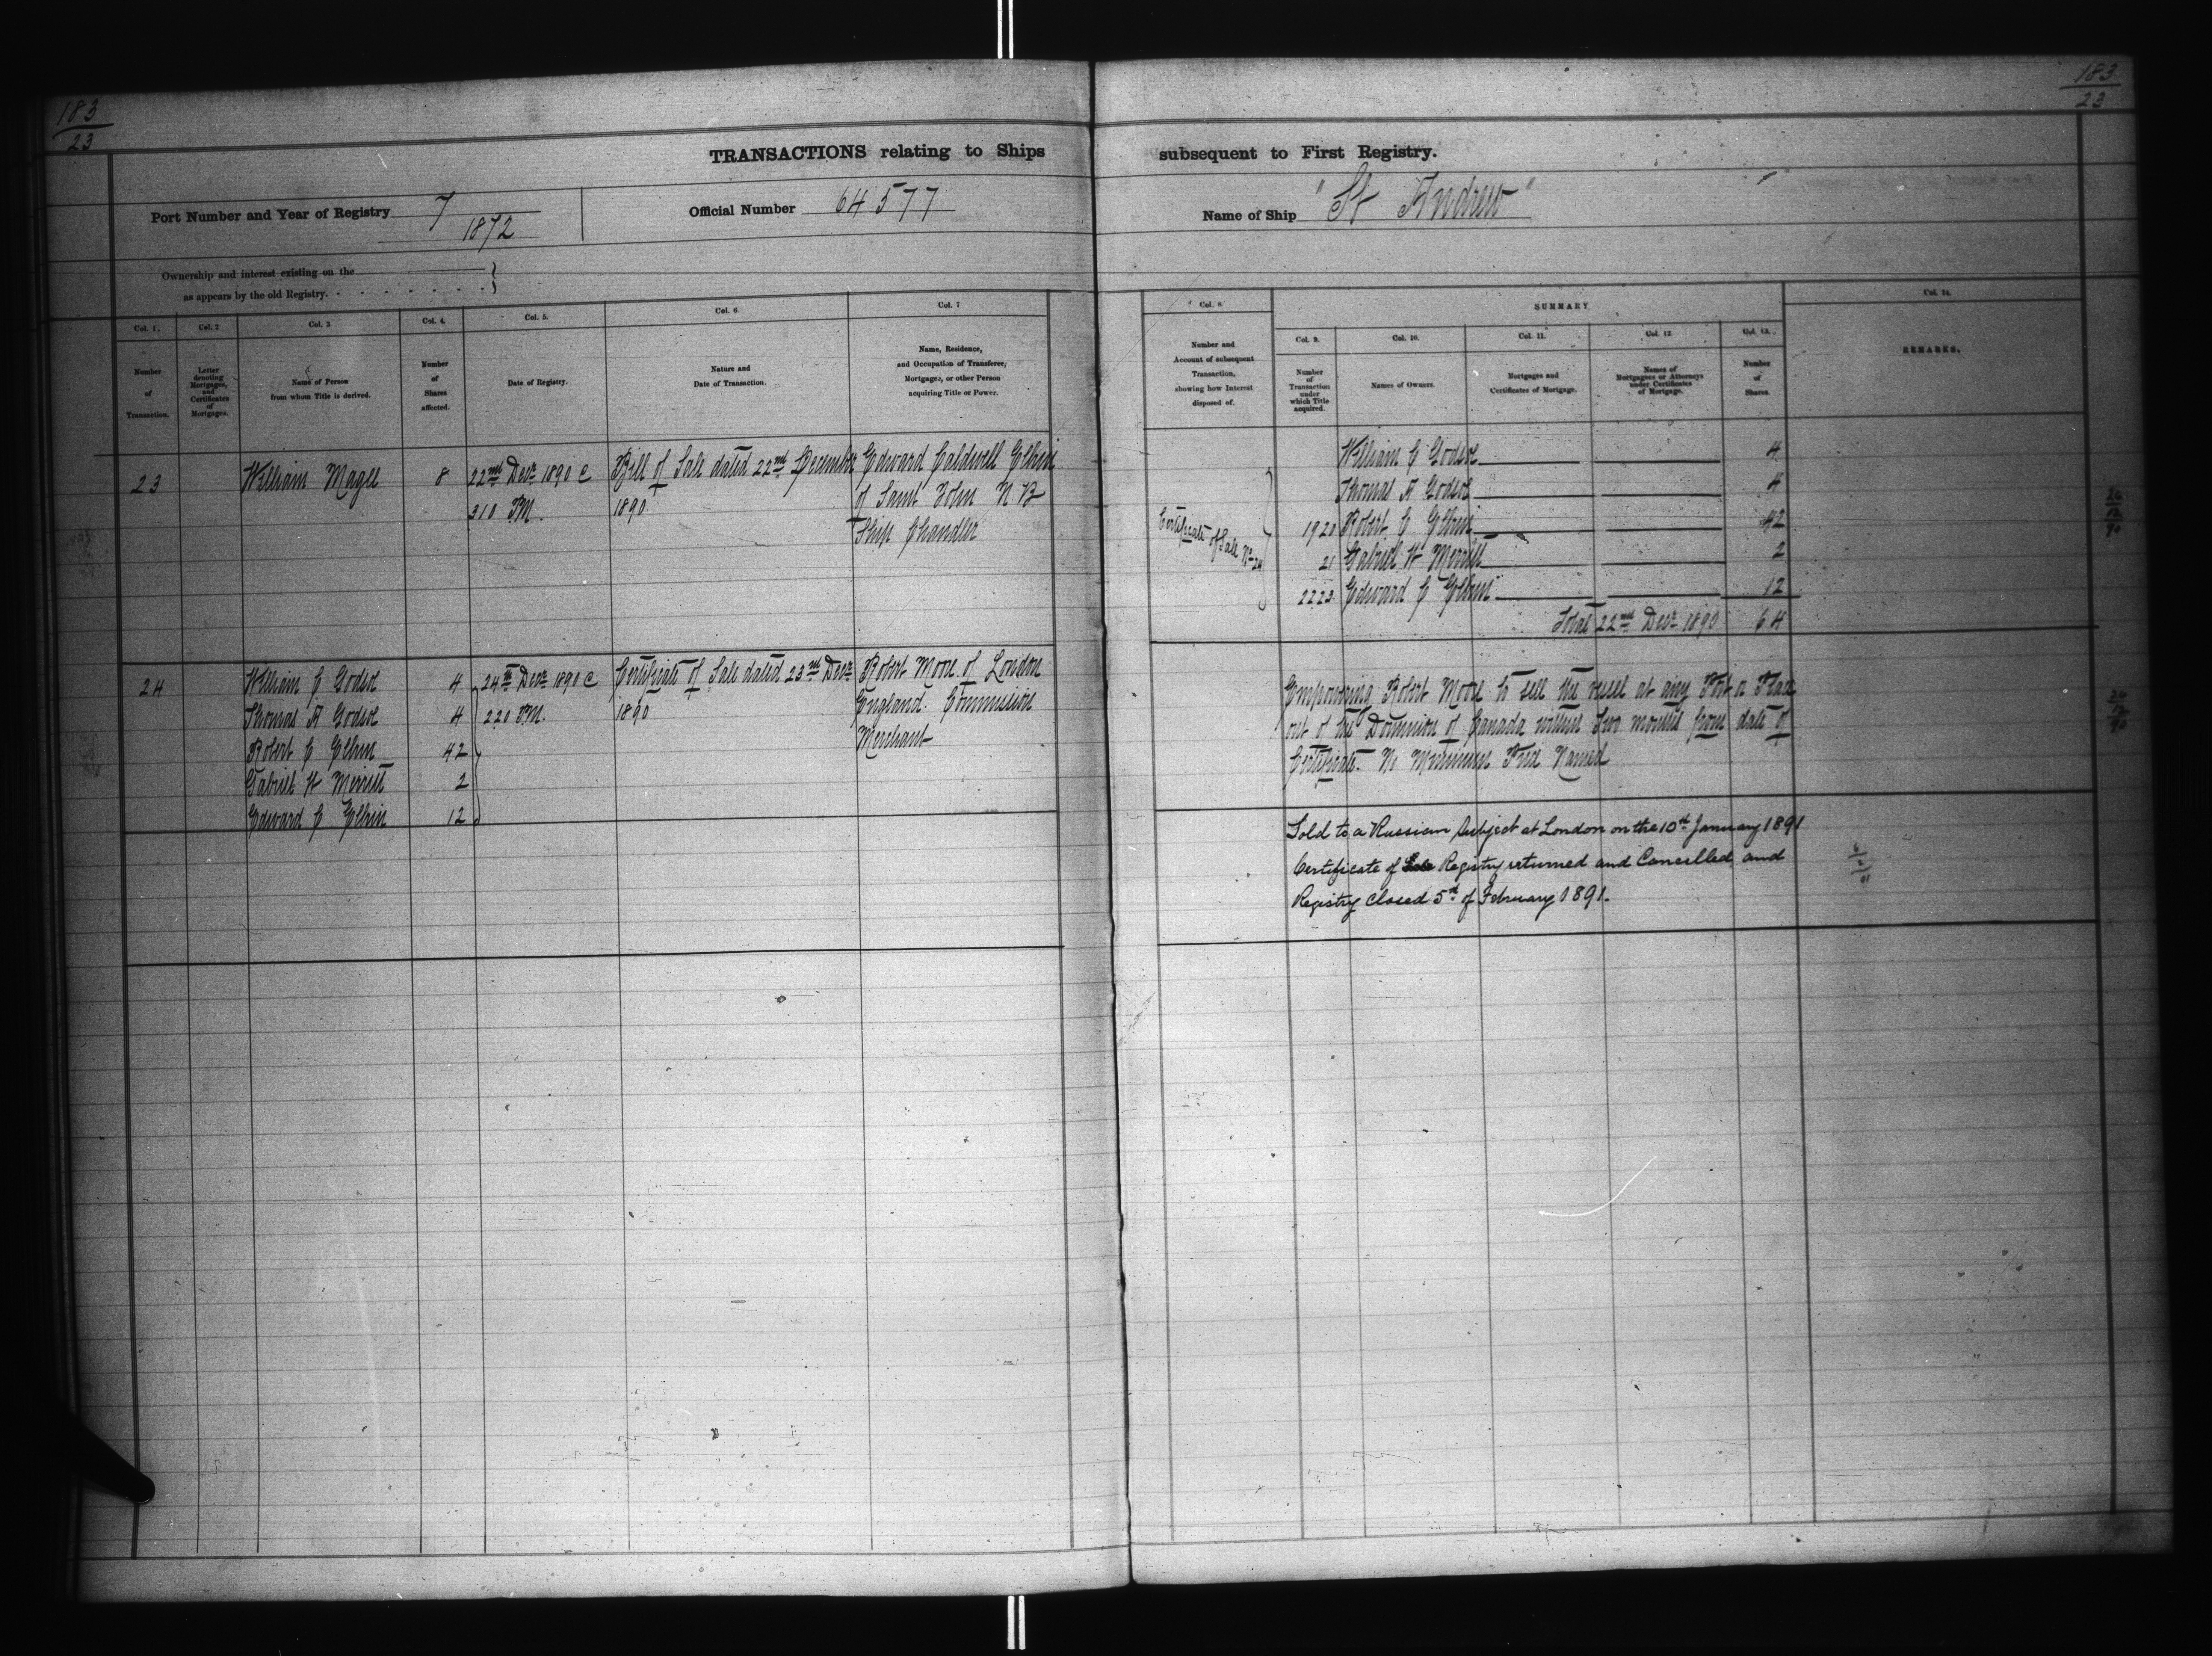 183
23
183
23
TRANSACTIONS relating to Ships subsequent to First Registry.
Port Number and Year of Registry 7
1872
Official Number 64577
Name of Ship "St Andrew"
Ownership and interest existing on the
as appears by the old Registry.
Col. 1.
Number
of
Transaction.
Col. 2
Letter
denoting
Mortgages,
and
Certificates
of
Mortgages.
Col. 3
Name of Person
from whom Title is derived.
Col. 4.
Number
of
Shares
affected.
Col. 5.
Date of Registry.
Col. 6
Nature and
Date of Transaction.
Col. 7
Name, Residence,
and Occupation of Transferee,
Mortgagee, or other Person
acquiring Title or Power.
Col. 8.
Number and
Account of subsequent
Transaction,
showing how Interest
disposed of.
SUMMARY
Col. 9.
Number
of
Transaction
under
which Title
acquired.
Col. 10.
Names of Owners.
Col. 11.
Mortgages and
Certificates of Mortgage.
Col. 12
Names of
Mortgagees or Attorneys
under Certificates
of Mortgage.
Col. 13.
Number
of
Shares.
Col. 14.
REMARKS.
23
William Magee
8
22nd Decr 1890 C
310 PM.
Bill of Sale dated 22nd December
1890
Edward Caldwell Elkin
of Saint John N.B
Ship Chandler
Certificate of Sale No 24
William C Godsoe 4
Thomas A Godsoe 4
1920 Robert C Elkin 42
21 Gabriel H Merritt 2
2223 Edward C Elkin 12
Total 22nd Decr 1890 64
24
12
90
24
William C Godsoe 4
Thomas A Godsoe 4
Robert C Elkin 42
Gabriel H Merritt 2
Edward C Elkin 12
24th Decr 1890 C
220 PM.
Certificate of Sale dated 23rd Decr
1890
Robert Moore of London
England. Commission
Merchant
Empowering Robert Moore to sell the vessel at any Port or Place
out of the Dominion of Canada within Two months from date of
Certificate. No Minimum Price Named
24
12
90
Sold to a Russian Subject at London on the 10th January 1891
Certificate of Registry returned and Cancelled and
Registry Closed 5th of February 1891.